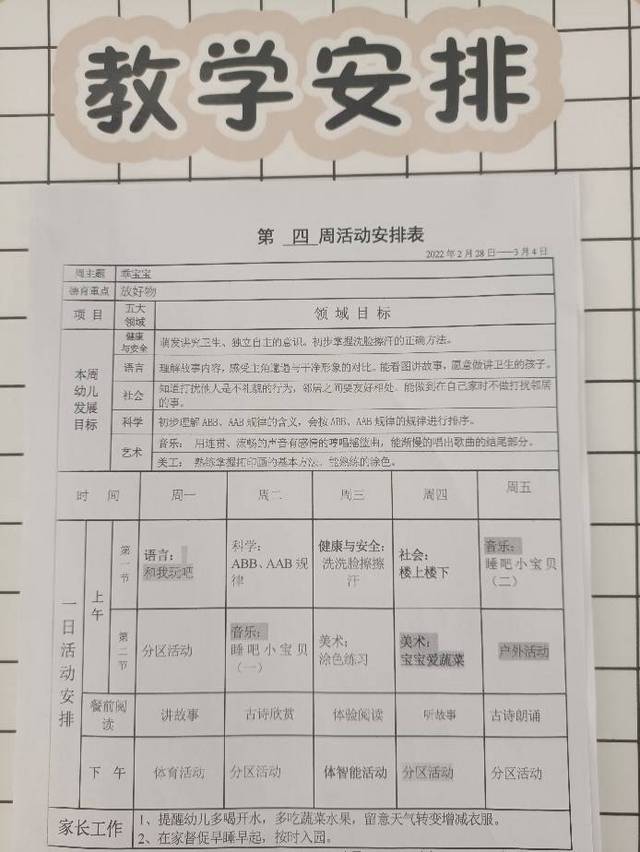 教学安排
第 四 周活动安排表
2022年2月28日——3月4日
周主题 乖宝宝
德育重点 放好物
项 目 五大领域 领域目标
本周幼儿发展目标
健康与安全 萌发讲究卫生、独立自主的意识。初步掌握洗脸擦汗的正确方法。
语言 理解故事内容，感受主角邋遢与干净形象的对比。能看图讲故事，愿意做讲卫生的孩子。
社会 知道打扰他人是不礼貌的行为，邻居之间要友好相处。能做到在自己家时不做打扰邻居
的事。
科学 初步理解ABB、AAB规律的含义，会按ABB、AAB规律的规律进行排序。
艺术 音乐：用连贯、流畅的声音有感情的哼唱摇篮曲，能渐慢的唱出歌曲的结尾部分。
美工：熟练掌握打印画的基本方法，能熟练的涂色。
时 间 周一 周二 周三 周四 周五
一日活动安排
上午
第一节 语言：和我玩吧 科学：ABB、AAB规律 健康与安全：洗洗脸擦擦汗 社会：楼上楼下 音乐：睡吧小宝贝（二）
第二节 分区活动 音乐：睡吧小宝贝（一） 美术：涂色练习 美术：宝宝爱蔬菜 户外活动
餐前阅读 讲故事 古诗欣赏 体验阅读 听故事 古诗朗诵
下 午 体育活动 分区活动 体智能活动 分区活动 分区活动
家长工作 1、提醒幼儿多喝开水，多吃蔬菜水果，留意天气转变增减衣服。
2、在家督促早睡早起，按时入园。